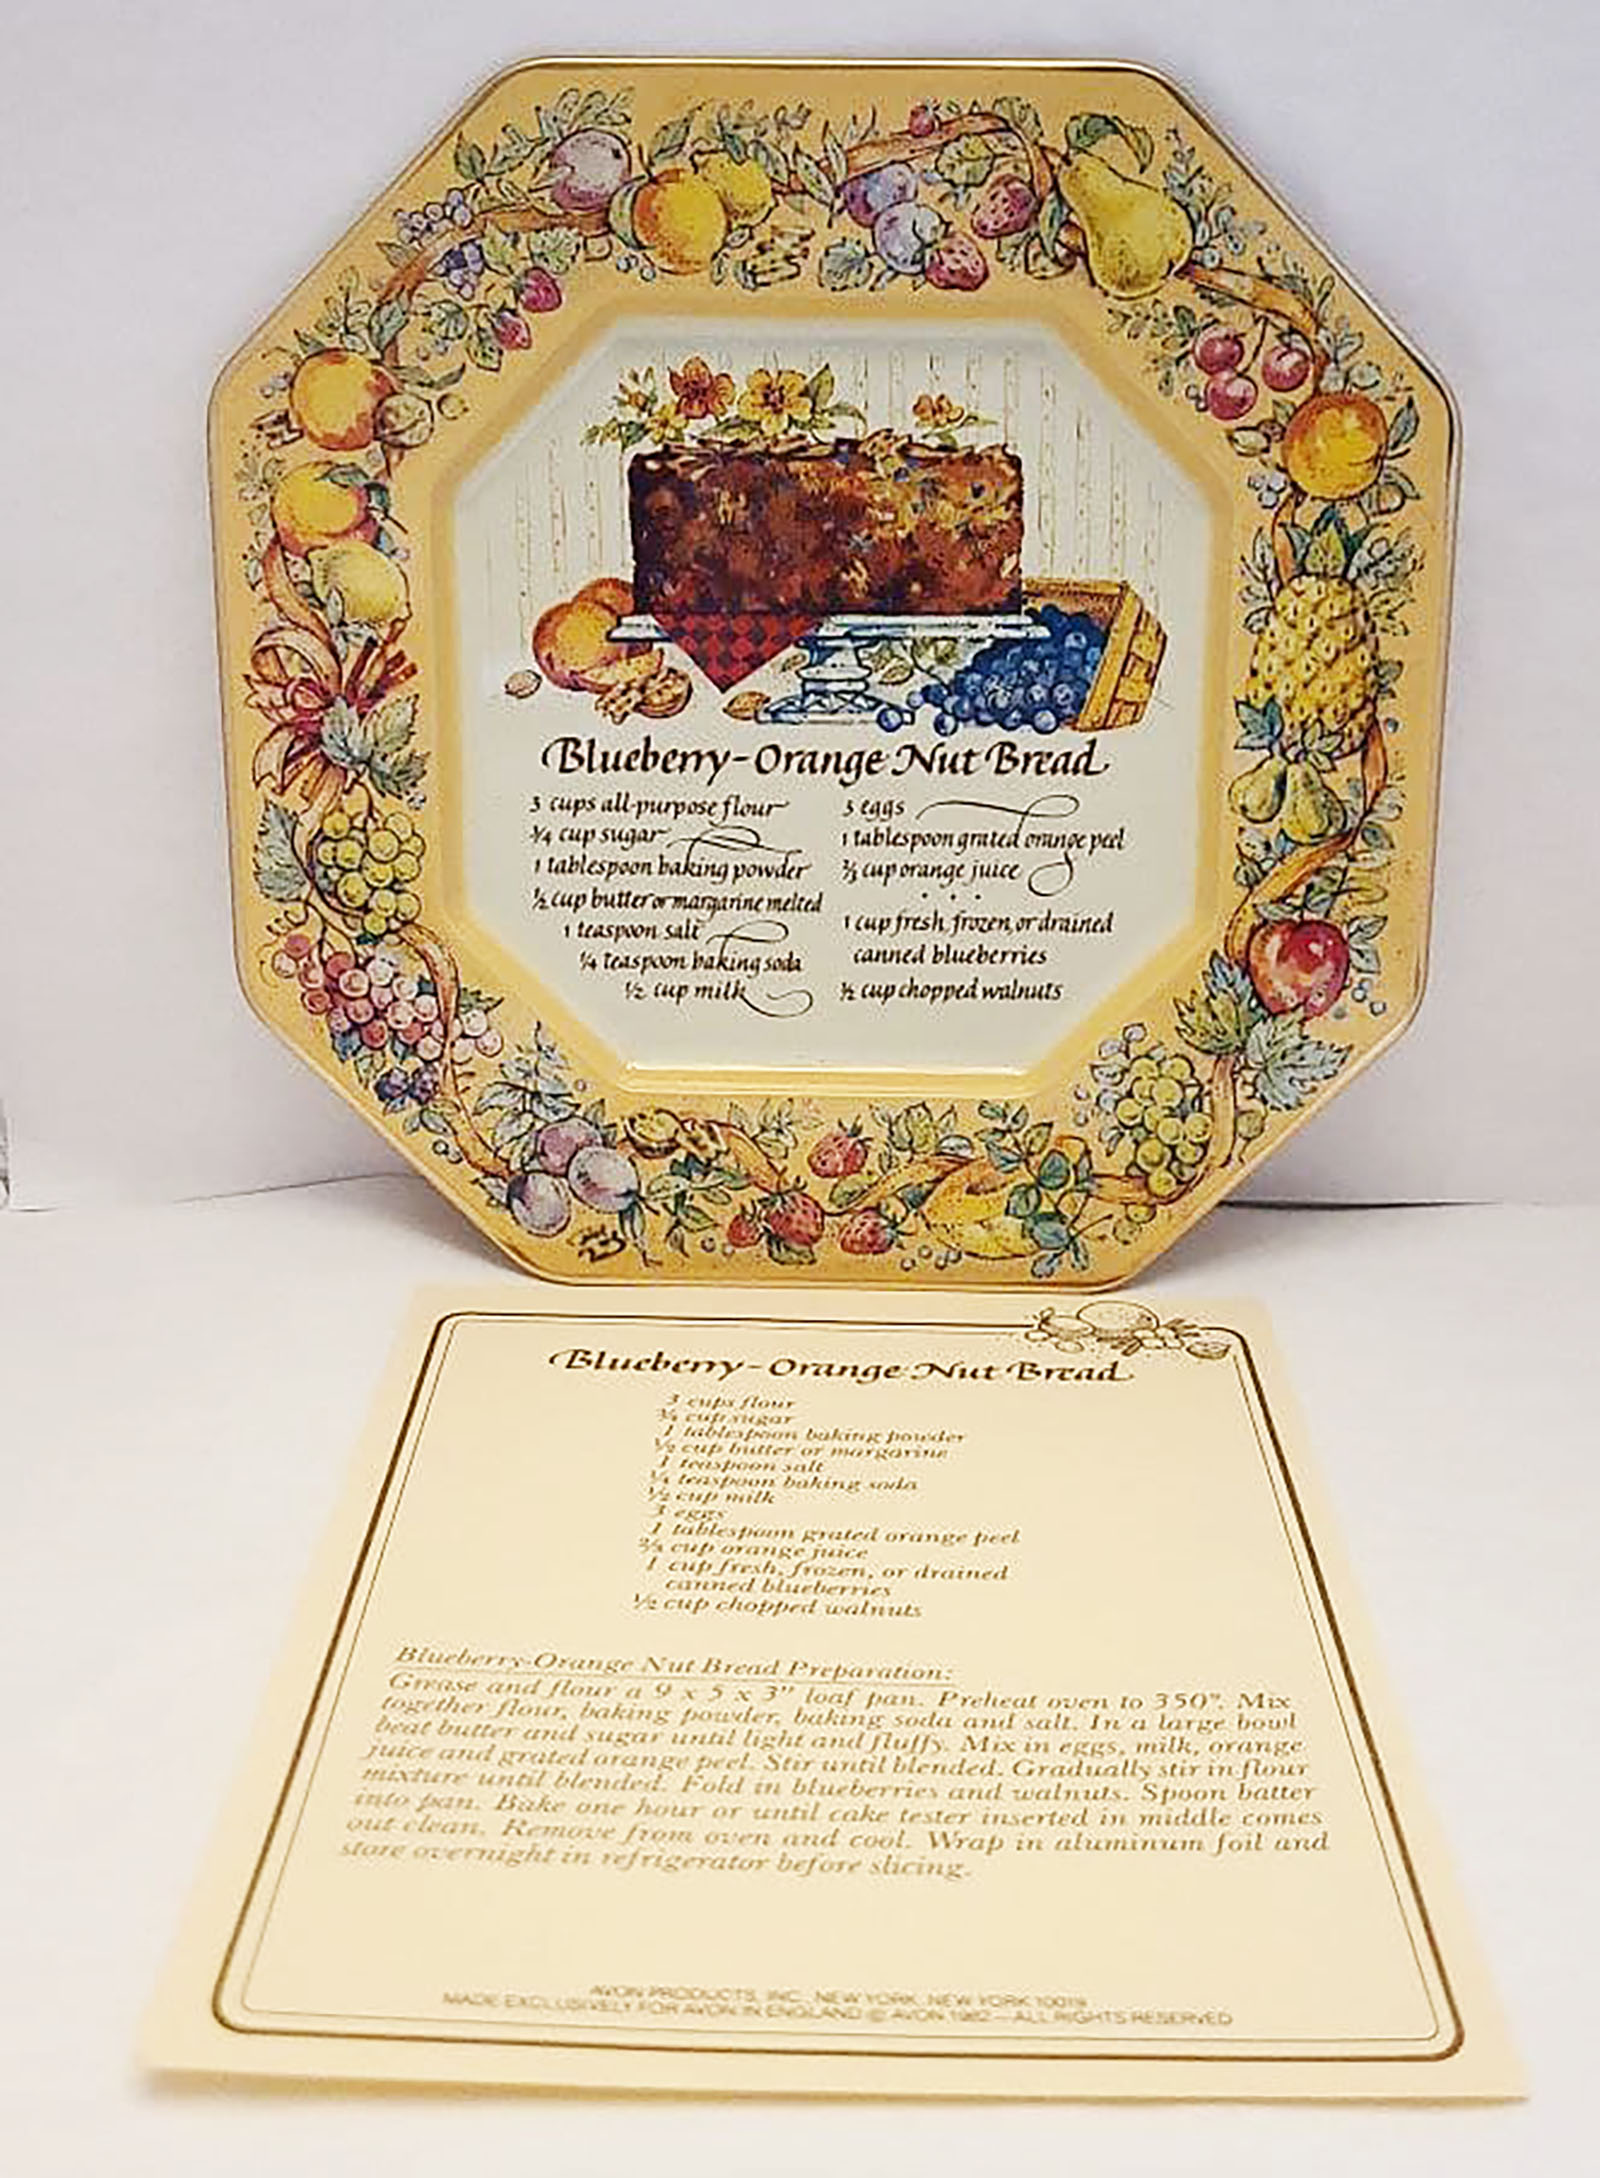 Blueberry-Orange Nut Bread
3 cups all-purpose flour
3/4 cup sugar
1 tablespoon baking powder
1/2 cup butter or margarine melted
1 teaspoon salt
1/4 teaspoon baking soda
1/2 cup milk
3 eggs
1 tablespoon grated orange peel
2/3 cup orange juice
• • •
1 cup fresh, frozen, or drained
canned blueberries
1/2 cup chopped walnuts
Blueberry-Orange Nut Bread
3 cups flour
3/4 cup sugar
1 tablespoon baking powder
1/2 cup butter or margarine
1 teaspoon salt
1/4 teaspoon baking soda
1/2 cup milk
3 eggs
1 tablespoon grated orange peel
2/3 cup orange juice
1 cup fresh, frozen, or drained
canned blueberries
1/2 cup chopped walnuts
Blueberry-Orange Nut Bread Preparation:
Grease and flour a 9 x 5 x 3" loaf pan. Preheat oven to 350°. Mix
together flour, baking powder, baking soda and salt. In a large bowl
beat butter and sugar until light and fluffy. Mix in eggs, milk, orange
juice and grated orange peel. Stir until blended. Gradually stir in flour
mixture until blended. Fold in blueberries and walnuts. Spoon batter
into pan. Bake one hour or until cake tester inserted in middle comes
out clean. Remove from oven and cool. Wrap in aluminum foil and
store overnight in refrigerator before slicing.
AVON PRODUCTS, INC., NEW YORK, NEW YORK 10019
MADE EXCLUSIVELY FOR AVON IN ENGLAND © AVON 1982—ALL RIGHTS RESERVED